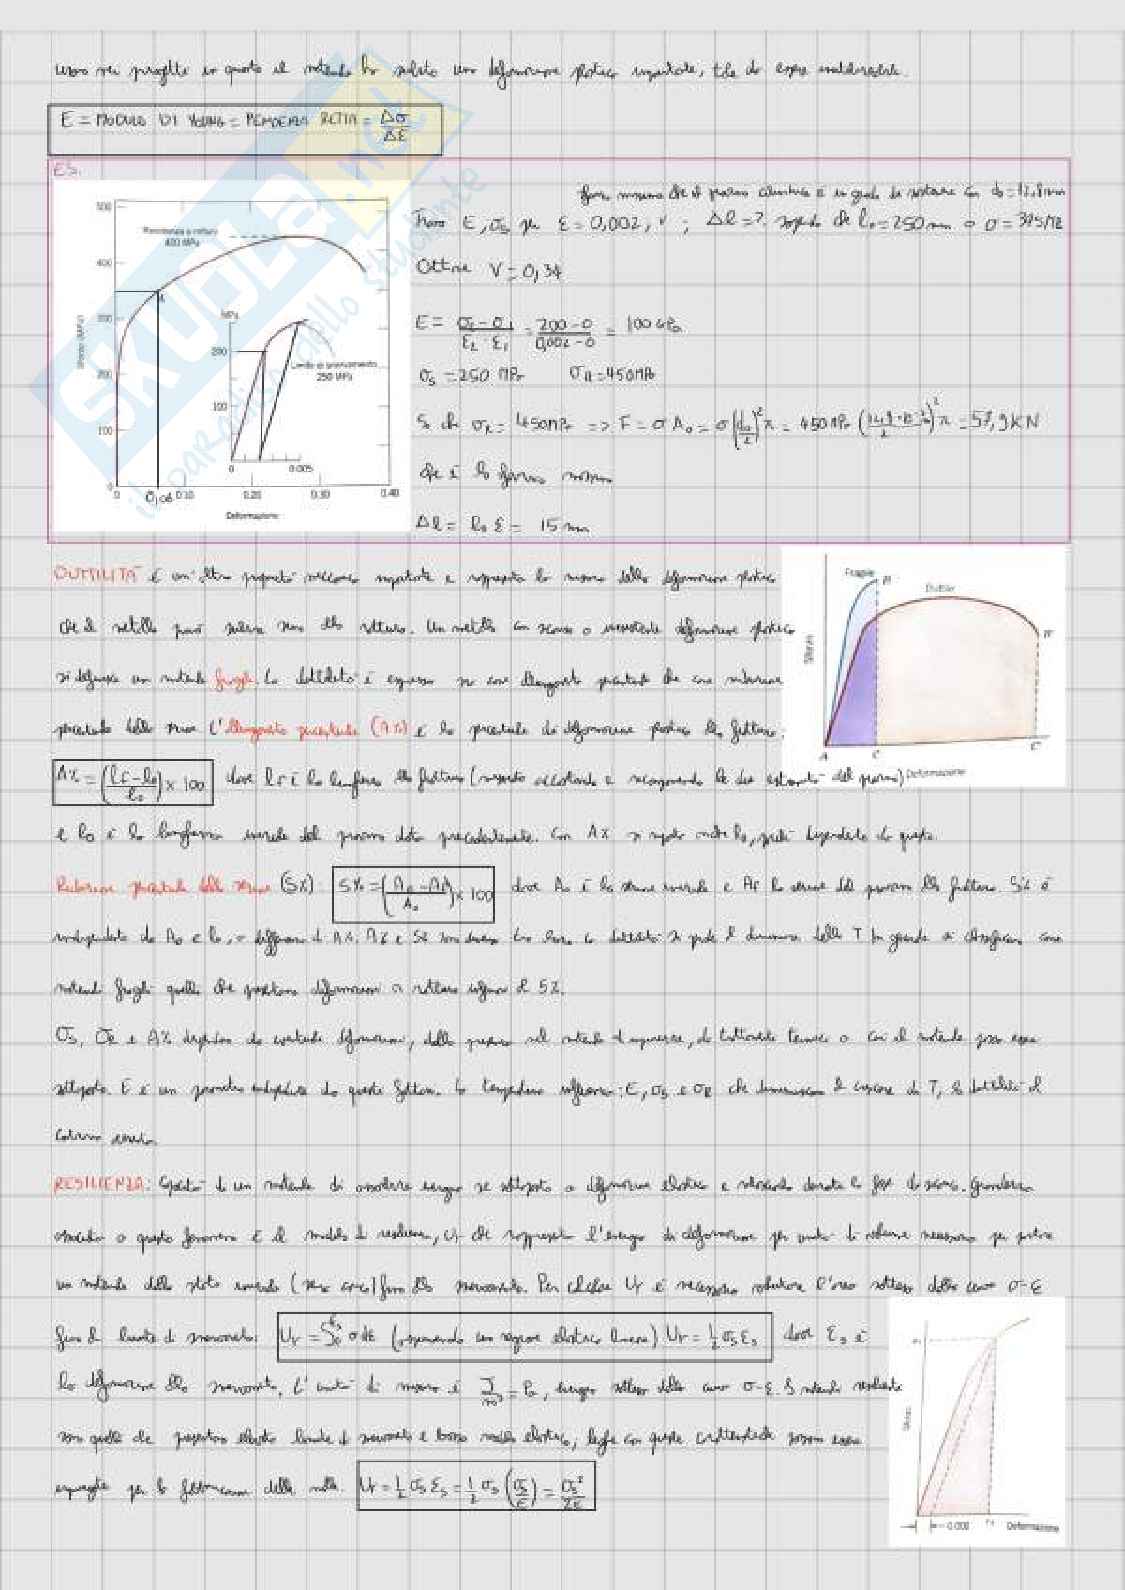 usare nei progetti in quanto il materiale ha subito una deformazione plastica importante, tale da essere
E = MODULO DI YOUNG = PENDENZA RETTA = Δσ/Δε
ES.
forza massima che il provino cilindrico è in grado di sostenere con d₀ = 12,8mm
Trovo E, σs per ε = 0,002, ; Δl = ? sapendo che l₀ = 250 mm σ = 345 MPa
Ottone V = 0,34
E = σ₂ - σ₁ / ε₂ - ε₁ = 200 - 0 / 0,002 - 0 = 100 GPa
σs = 250 MPa σR = 450 MPa
So che σR = 450 MPa => F = σ A₀ = σ (d₀/2)² π = 450 MPa π = 57,9 kN
che è la forza massima
Δl = l₀ ε = 15 mm
500
400
300
200
100
0
Resistenza a rottura
450 MPa
A
Sforzo (MPa)
MPa
200
100
0 0.005
Limite di snervamento
250 MPa
0 0,06 0.10 0.20 0.30 0.40
Deformazione
DUTTILITÀ è un'altra proprietà meccanica importante e rappresenta la misura della deformazione plastica
che il metallo può subire prima della rottura. Un metallo con scarsa o inesistente deformazione plastica
si definisce un materiale fragile. La duttilità è espressa sia come allungamento percentuale che come riduzione
percentuale della sezione. L'Allungamento percentuale (A%) è la percentuale di deformazione plastica alla frattura:
Fragile
B
Duttile
B'
Sforzo
A C C'
Deformazione
A% = (lf - l₀ / l₀) × 100 dove lf è la lunghezza alla frattura (misurata accostando e ricomponendo le due estremità del provino)
e l₀ è la lunghezza iniziale del provino data precedentemente. Con A% si riporta anche l₀, perché dipendente da questa
Riduzione percentuale della sezione (S%): S% = (A₀ - Af / A₀) × 100 dove A₀ è la sezione iniziale e Af la sezione del provino alla frattura. S% è
indipendente da A₀ e l₀, a differenza di A%. A% e S% sono diversi tra loro. La duttilità si perde al diminuire della T. In generale si classificano come
materiali fragili quelli che presentano deformazioni a rottura inferiori al 5%.
σs, σR e A% dipendono da eventuale deformazioni, dalla presenza nel materiale di impurezze, da trattamento termico a cui il materiale possa essere
sottoposto. E è un parametro indipendente da questi fattori. La temperatura influenza: E, σs e σR che diminuiscono al crescere di T, la duttilità al
contrario aumenta.
RESILIENZA: Capacità di un materiale di assorbire energia se sottoposto a deformazione elastica e rilasciarla durante la fase di scarico. Grandezza
associata a questo fenomeno è il modulo di resilienza, Ur che rappresenta l'energia di deformazione per unità di volume necessaria per portare
un materiale dallo stato iniziale (senza carico) fino allo snervamento. Per calcolare Ur è necessario valutare l'area sottesa dalla curva σ-ε
fino al limite di snervamento: Ur = ∫₀^εs σ dε (assumendo una regione elastica lineare) Ur = ½ σs εs dove εs è
la deformazione allo snervamento. L'unità di misura è J/m³ = Pa, energia sottesa dalla curva σ-ε. I materiali resilienti
sono quelli che presentano elevato limite di snervamento e basso modulo elastico; leghe con queste caratteristiche possono essere
impiegate per la fabbricazione delle molle. Ur = ½ σs εs = ½ σs (σs/E) = σs²/2E
Sforzo
0.002
Deformazione